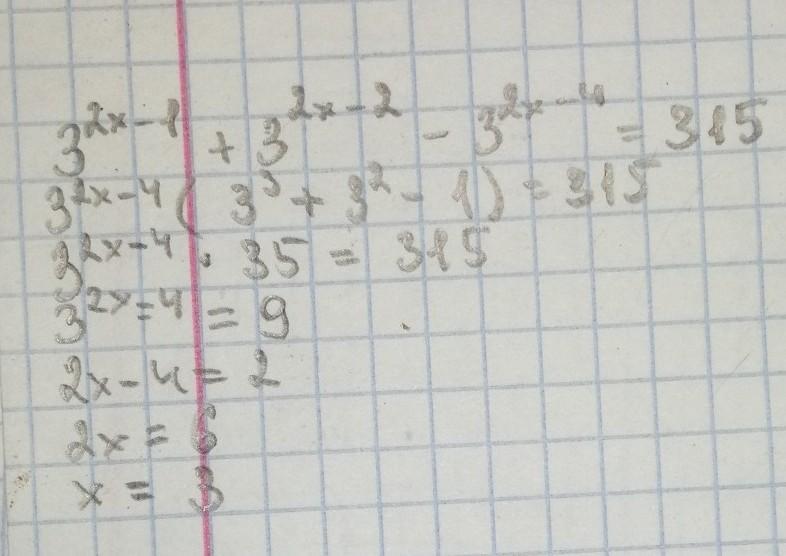 3^{2x-1} + 3^{2x-2} - 3^{2x-4} = 315
3^{2x-4} ( 3^3 + 3^2 - 1) = 315
3^{2x-4} . 35 = 315
3^{2x=4} = 9
2x-4 = 2
2x = 6
x = 3